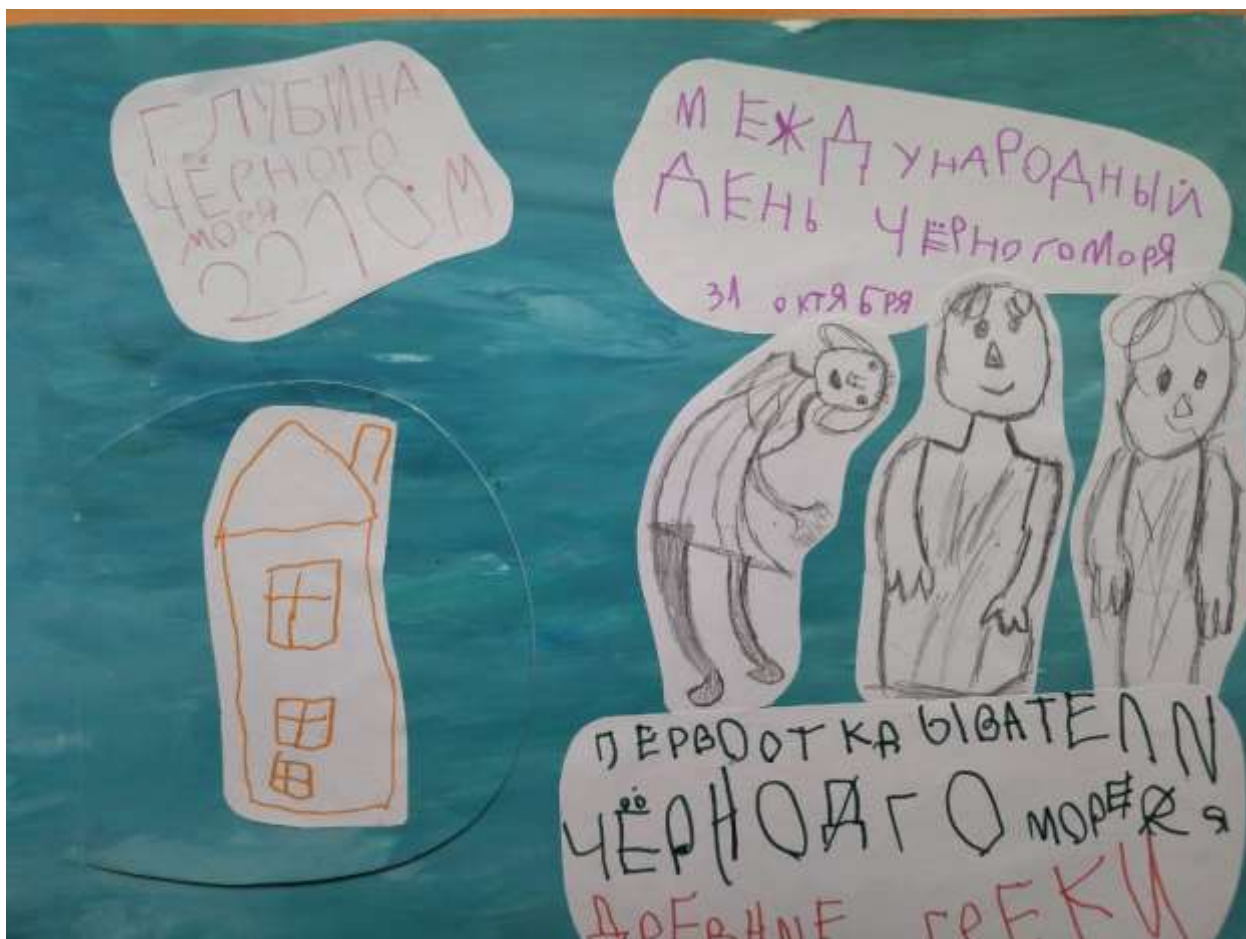 ГЛУБИНА
ЧЁРНОГО
МОРЯ
2210 М
МЕЖДУНАРОДНЫЙ
ДЕНЬ ЧЁРНОГОМОРЯ
31 ОКТЯБРЯ
ПЕРВООТКАЫВАТЕЛИ
ЧЁРНОГО МОРЯ
ДРЕВНИЕ ГРЕКИ